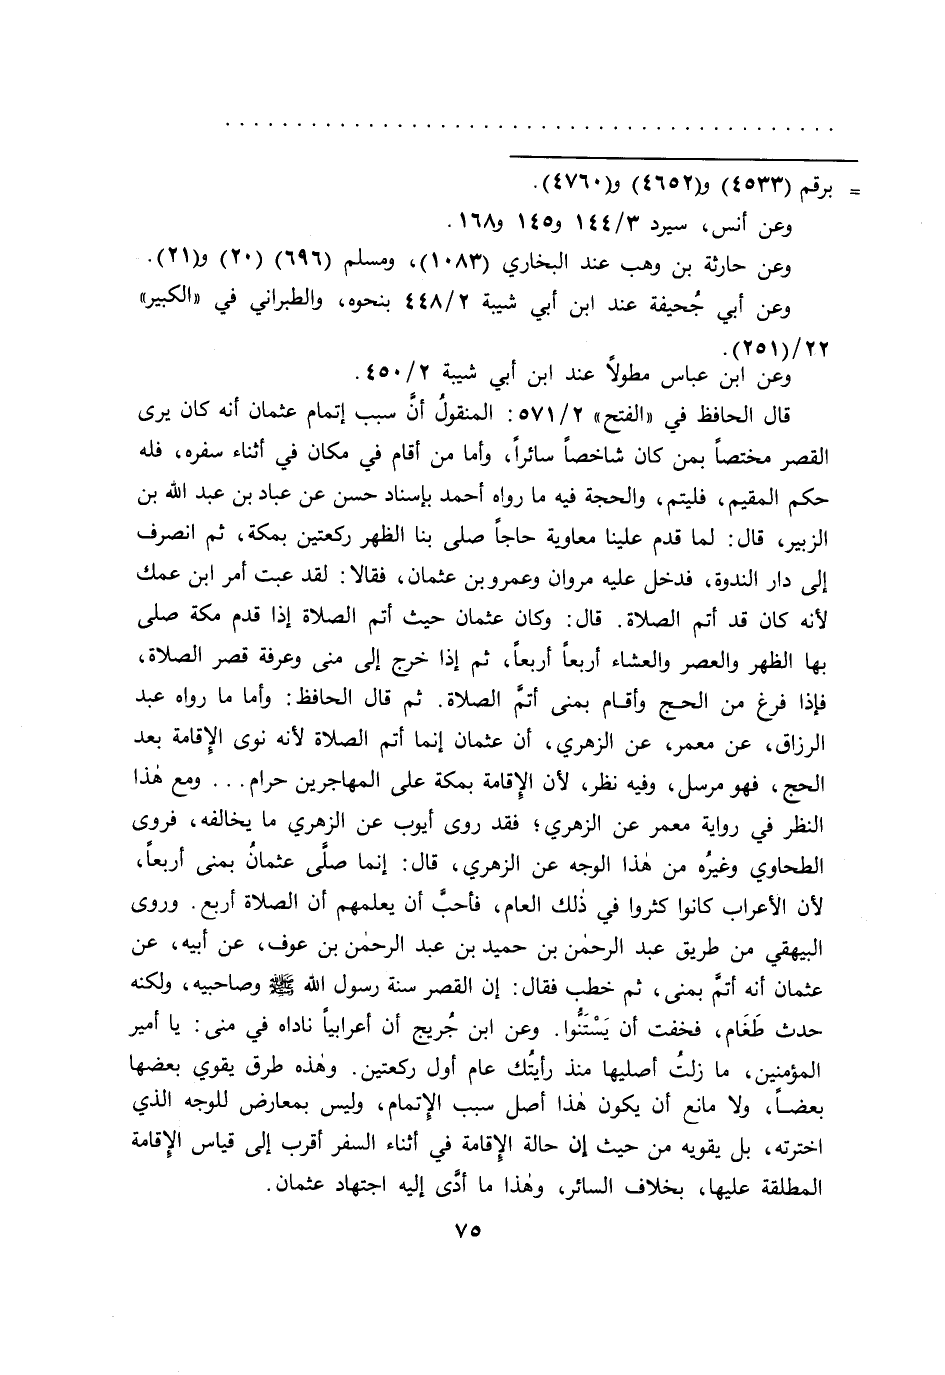 = برقم (٤٥٣٣) و(٤٦٥٢) و(٤٧٦٠).
وعن أنس، سيرد ١٤٤/٣ و١٤٥ و١٦٨.
وعن حارثة بن وهب عند البخاري (١٠٨٣)، ومسلم (٦٩٦) (٢٠) و(٢١).
وعن أبي جُحيفة عند ابن أبي شيبة ٤٤٨/٢ بنحوه، والطبراني في «الكبير»
٢٢/(٢٥١).
وعن ابن عباس مطولاً عند ابن أبي شيبة ٤٥٠/٢.
قال الحافظ في «الفتح» ٥٧١/٢: المنقولُ أنَّ سبب إتمام عثمان أنه كان يرى
القصر مختصاً بمن كان شاخصاً سائراً، وأما من أقام في مكان في أثناء سفره، فله
حكم المقيم، فليتم، والحجة فيه ما رواه أحمد بإسناد حسن عن عباد بن عبد الله بن
الزبير، قال: لما قدم علينا معاوية حاجاً صلى بنا الظهر ركعتين بمكة، ثم انصرف
إلى دار الندوة، فدخل عليه مروان وعمرو بن عثمان، فقالا: لقد عبت أمر ابن عمك
لأنه كان قد أتم الصلاة. قال: وكان عثمان حيث أتم الصلاة إذا قدم مكة صلى
بها الظهر والعصر والعشاء أربعاً أربعاً، ثم إذا خرج إلى منى وعرفة قصر الصلاة،
فإذا فرغ من الحج وأقام بمنى أتمَّ الصلاة. ثم قال الحافظ: وأما ما رواه عبد
الرزاق، عن معمر، عن الزهري، أن عثمان إنما أتم الصلاة لأنه نوى الإقامة بعد
الحج، فهو مرسل، وفيه نظر، لأن الإقامة بمكة على المهاجرين حرام... ومع هٰذا
النظر في رواية معمر عن الزهري؛ فقد روى أيوب عن الزهري ما يخالفه، فروى
الطحاوي وغيرُه من هٰذا الوجه عن الزهري، قال: إنما صلَّى عثمانُ بمنى أربعاً،
لأن الأعراب كانوا كثروا في ذٰلك العام، فأحبَّ أن يعلمهم أن الصلاة أربع. وروى
البيهقي من طريق عبد الرحمٰن بن حميد بن عبد الرحمٰن بن عوف، عن أبيه، عن
عثمان أنه أتمَّ بمنى، ثم خطب فقال: إن القصر سنة رسول الله ﷺ وصاحبيه، ولكنه
حدث طَغَام، فخفت أن يَسْتَنُّوا. وعن ابن جُريج أن أعرابياً ناداه في منى: يا أمير
المؤمنين، ما زلتُ أصليها منذ رأيتُك عام أول ركعتين. وهٰذه طرق يقوي بعضها
بعضاً، ولا مانع أن يكون هٰذا أصل سبب الإتمام، وليس بمعارض للوجه الذي
اخترته، بل يقويه من حيث إن حالة الإقامة في أثناء السفر أقرب إلى قياس الإقامة
المطلقة عليها، بخلاف السائر، وهٰذا ما أدَّى إليه اجتهاد عثمان.
٧٥